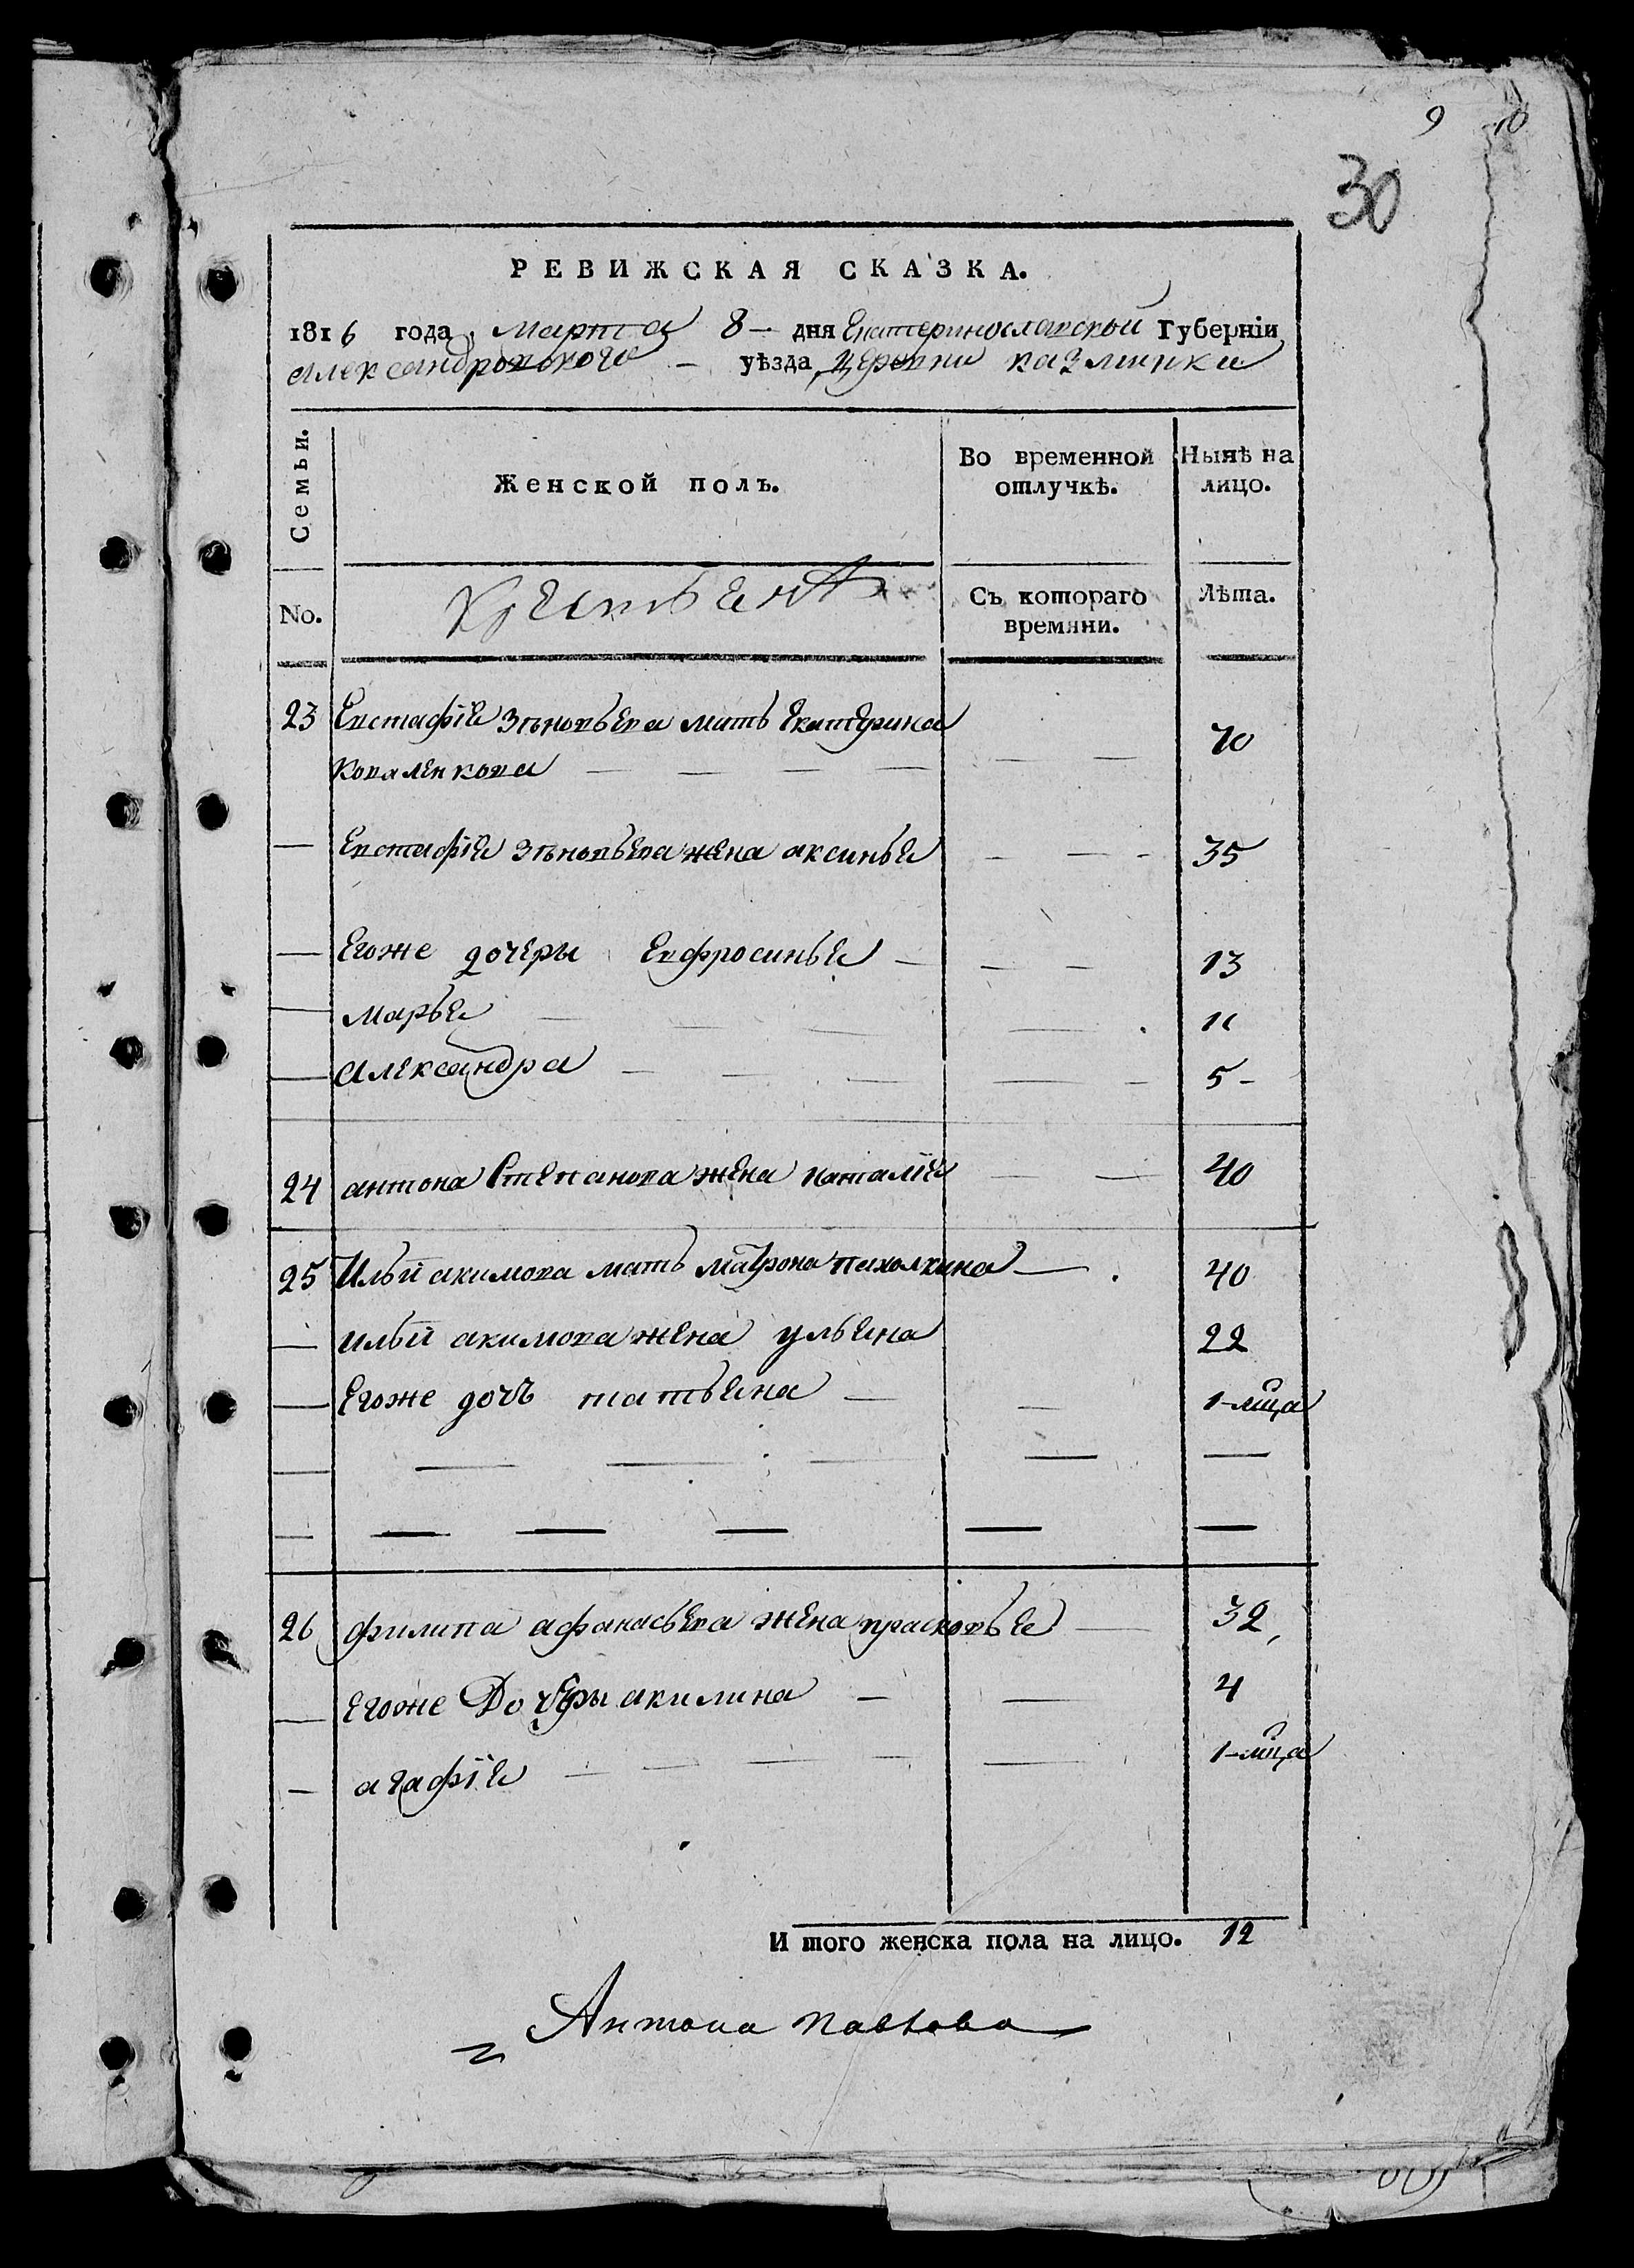 9 10
30
РЕВИЖСКАЯ СКАЗКА.
1816 года, Марта 8 - дня Екатеринославской Губерніи
Александровского - уѣзда, деревни Казминки
Семьи. Женской полъ. Во временной отлучкѣ. Нынѣ на лицо.
No. Съ котораго времяни. Лѣта.
23 Евстафіе Зѣновьева мать Екатерина
Коваленкова 70
Евстафіе Зѣновьева жена аксинье 35
Егоже дочеры Евфросинье 13
Марье 11
александра 5
24 антона Степанова жена Наталіе 40
25 Ильи акимова мать матрона пихолкина 40
ильи акимова жена ульена 22
Егоже дочъ татьена 1 мца
26 филипа афанасьева жена прасковье 32
Егоже Дочеры акилина 4
агафіе 1 мца
И того женска пола на лицо. 12
Антона Павлова